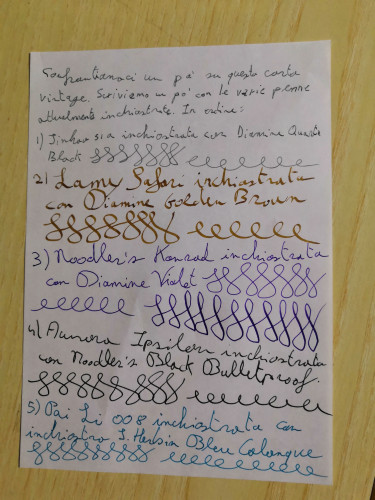 Confrontiamoci un po' su questa carta
vintage. Scriviamo un po' con le varie penne
attualmente inchiostrate. In ordine:
1) Jinhao 51a inchiostrata con Diamine Quartz
Black
2) Lamy Safari inchiostrata
con Diamine Golden Brown
3) Noodler's Konrad inchiostrata
con Diamine Violet
4) Aurora Ipsilon inchiostrata
con Noodler's Black Bulletproof.
5) Pai Li 008 inchiostrata con
inchiostro J. Herbin Bleu Calanque